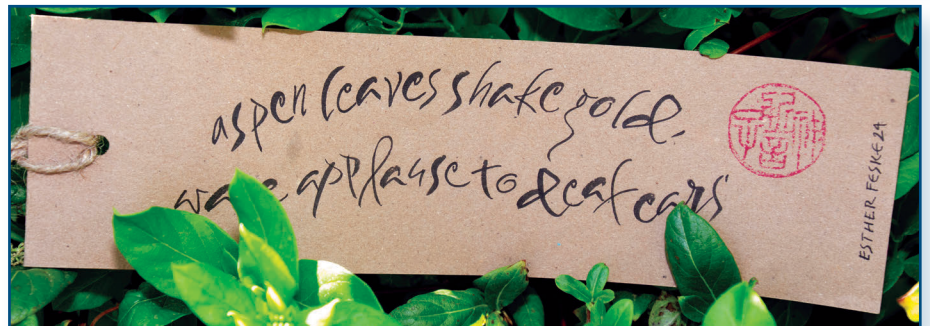 aspen leaves shake gold.
wave applause to deaf ears
ESTHER FESKE 24